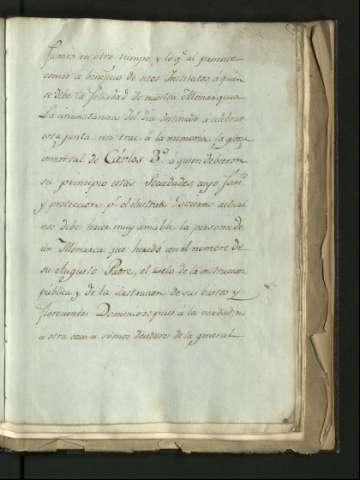 famos en otro tiempo, y lo q.e al presente
comer a beneficio de estos Institutos, a quien
se debe la felicidad de nuestra Monarquia
La circunstancia del dia destinado á celebrar
esta junta nos trae á la memoria la
inmortal de Cárlos 3.o á quien debieron
su principio estas Sociedades, cuyo
y proteccion p.r el ilustrado discurso actual
nos debe hacer muy amable la persona de
un Monarca que heredó con el nombre de
su Augusto Padre, el zelo de la instruccion
pública y de la ilustracion de sus vastos y
florecientes Dominios; pues á la verdad, n
a otra cosa somos deudores de la general